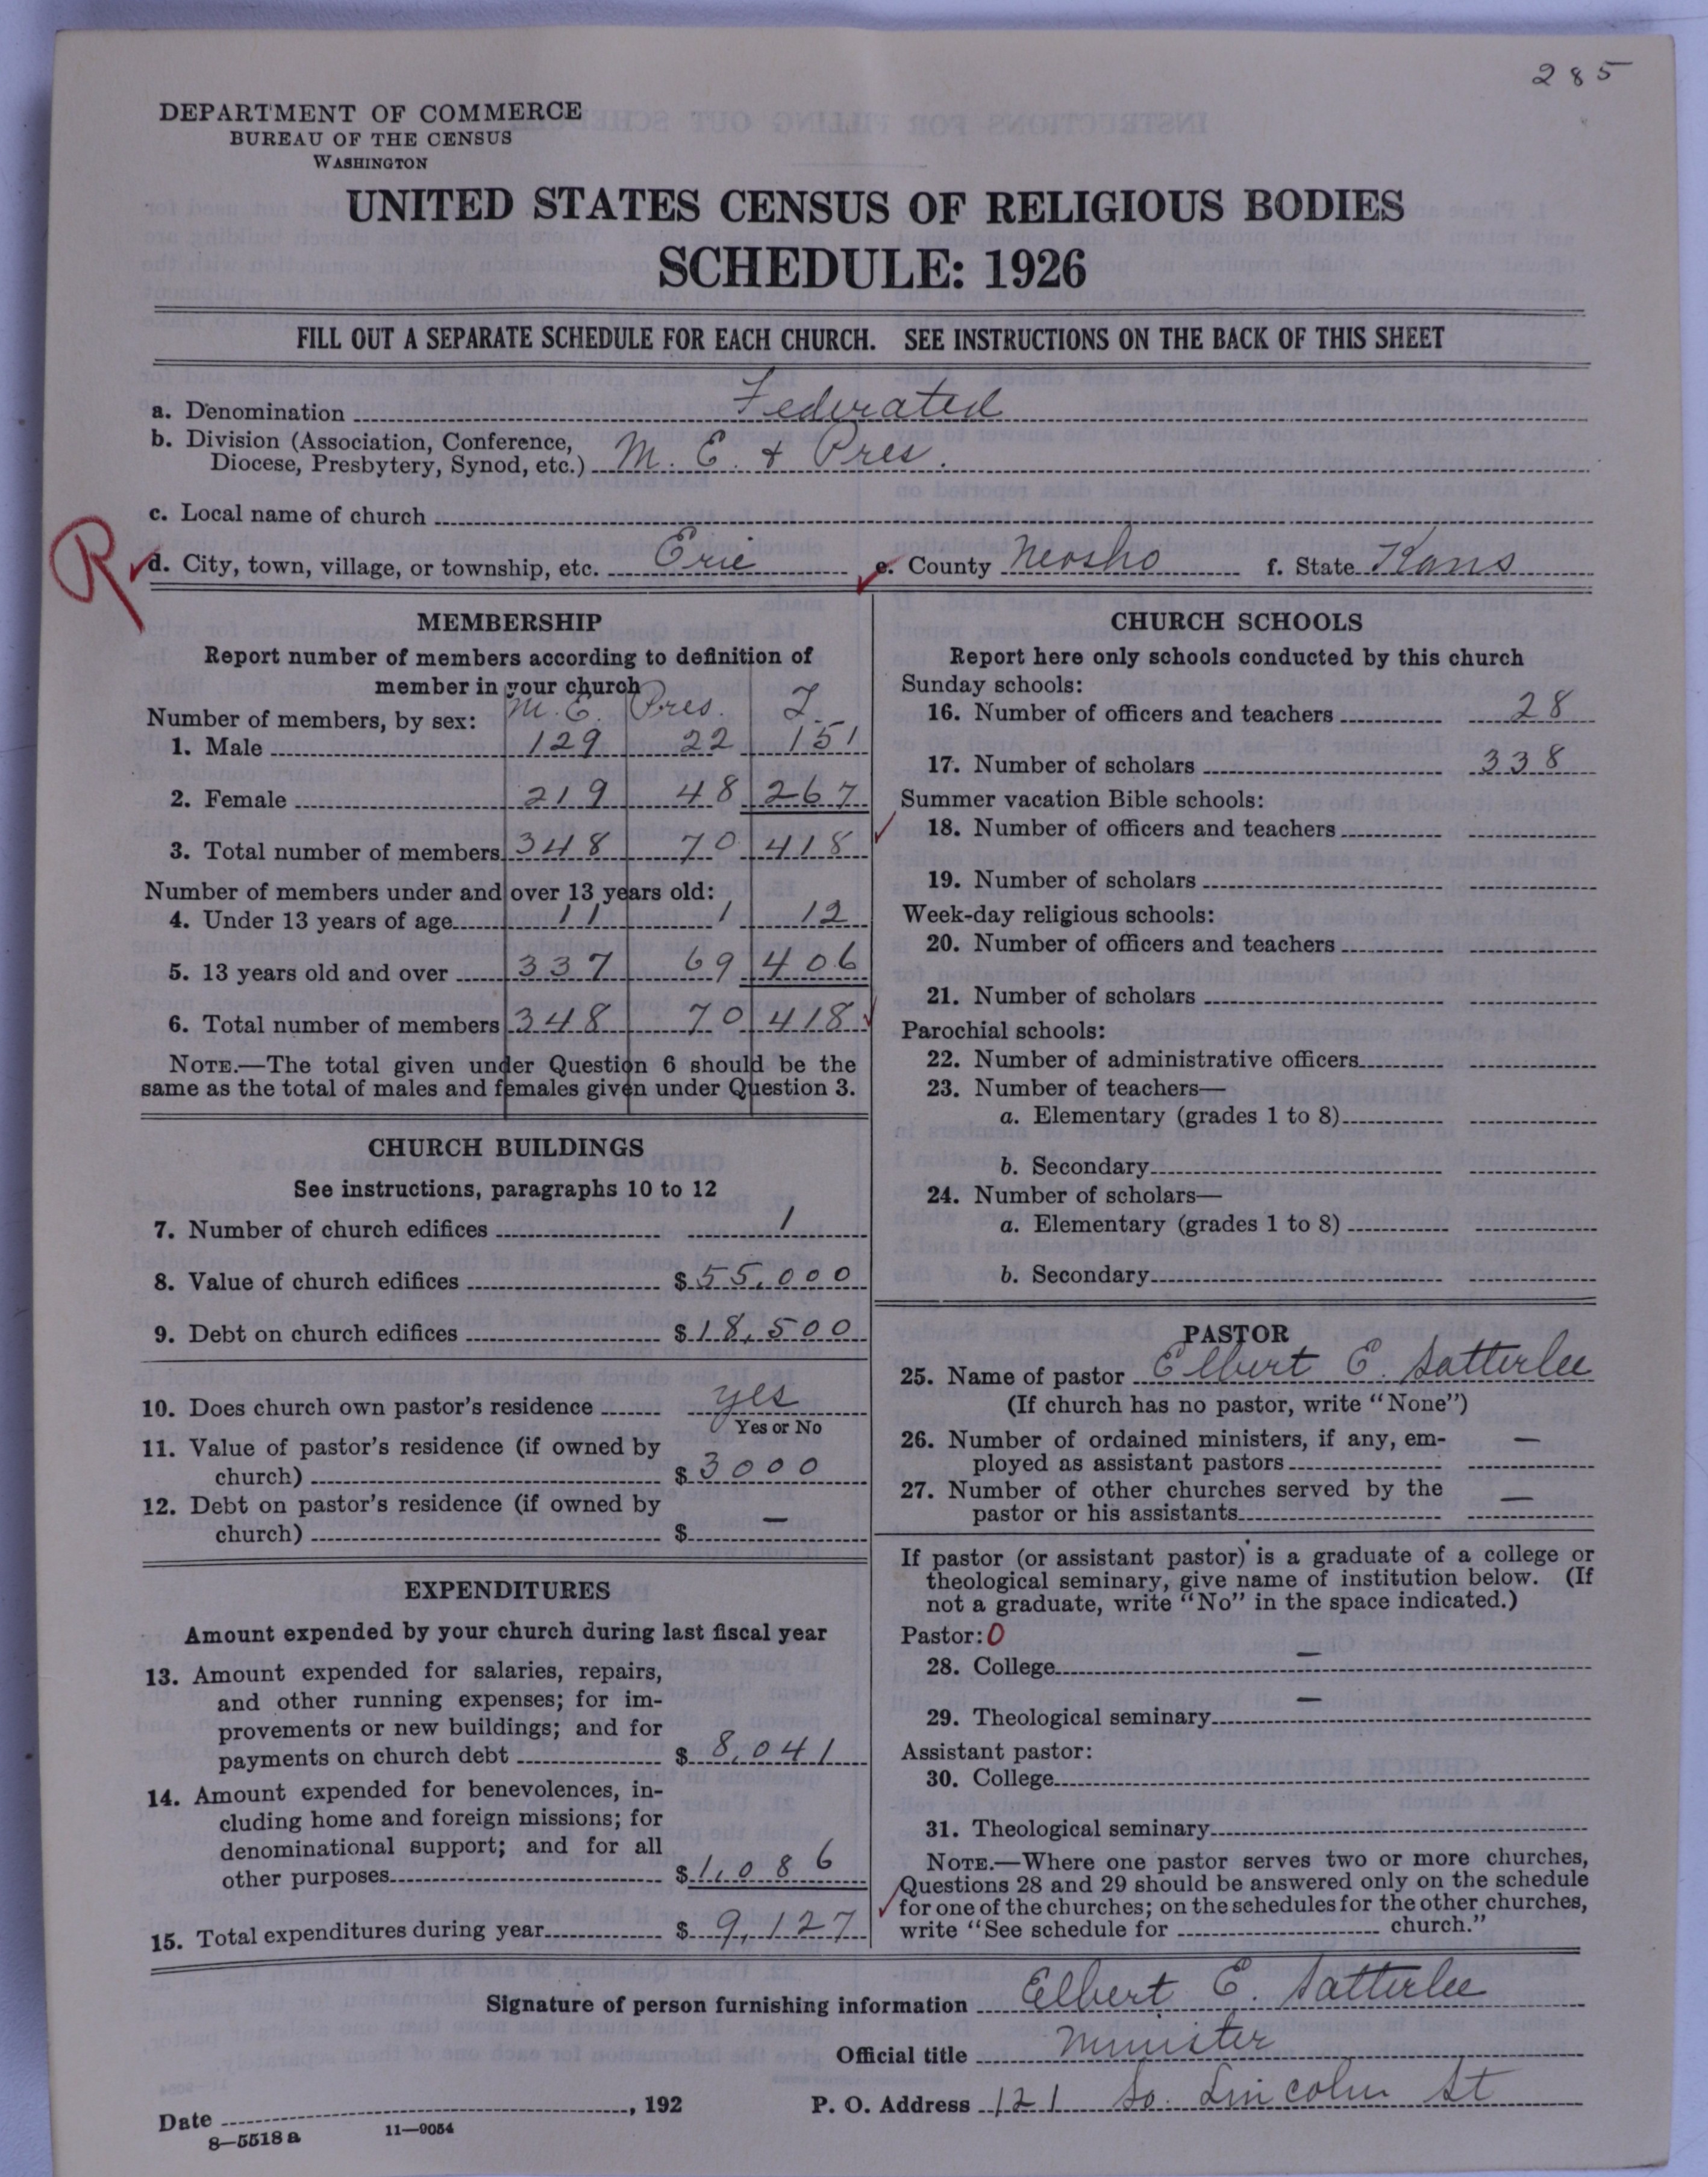 285
DEPARTMENT OF COMMERCE
BUREAU OF THE CENSUS
WASHINGTON
UNITED STATES CENSUS OF RELIGIOUS BODIES
SCHEDULE: 1926
FILL OUT A SEPARATE SCHEDULE FOR EACH CHURCH. SEE INSTRUCTIONS ON THE BACK OF THIS SHEET
a. Denomination Federated
b. Division (Association, Conference,
Diocese, Presbytery, Synod, etc.) M. E. & Pres.
c. Local name of church
R d. City, town, village, or township, etc. Erie e. County Neosho f. State Kans
MEMBERSHIP
Report number of members according to definition of
member in your church
Number of members, by sex: M.E. Pres. T.
1. Male 129 22 151
2. Female 219 48 267
3. Total number of members 348 70 418
Number of members under and over 13 years old:
4. Under 13 years of age 11 1 12
5. 13 years old and over 337 69 406
6. Total number of members 348 70 418
NOTE.—The total given under Question 6 should be the
same as the total of males and females given under Question 3.
CHURCH BUILDINGS
See instructions, paragraphs 10 to 12
7. Number of church edifices 1
8. Value of church edifices $ 55,000
9. Debt on church edifices $ 18,500
10. Does church own pastor's residence yes
Yes or No
11. Value of pastor's residence (if owned by
church) $ 3000
12. Debt on pastor's residence (if owned by
church) $ —
EXPENDITURES
Amount expended by your church during last fiscal year
13. Amount expended for salaries, repairs,
and other running expenses; for im-
provements or new buildings; and for
payments on church debt $ 8,041
14. Amount expended for benevolences, in-
cluding home and foreign missions; for
denominational support; and for all
other purposes $ 1,086
15. Total expenditures during year $ 9,127
CHURCH SCHOOLS
Report here only schools conducted by this church
Sunday schools:
16. Number of officers and teachers 28
17. Number of scholars 338
Summer vacation Bible schools:
18. Number of officers and teachers
19. Number of scholars
Week-day religious schools:
20. Number of officers and teachers
21. Number of scholars
Parochial schools:
22. Number of administrative officers
23. Number of teachers—
a. Elementary (grades 1 to 8)
b. Secondary
24. Number of scholars—
a. Elementary (grades 1 to 8)
b. Secondary
PASTOR
25. Name of pastor Elbert E. Satterlee
(If church has no pastor, write "None")
26. Number of ordained ministers, if any, em-
ployed as assistant pastors —
27. Number of other churches served by the
pastor or his assistants —
If pastor (or assistant pastor) is a graduate of a college or
theological seminary, give name of institution below. (If
not a graduate, write "No" in the space indicated.)
Pastor: 0
28. College —
29. Theological seminary —
Assistant pastor:
30. College
31. Theological seminary
NOTE.—Where one pastor serves two or more churches,
Questions 28 and 29 should be answered only on the schedule
for one of the churches; on the schedules for the other churches,
write "See schedule for church."
Signature of person furnishing information Elbert E. Satterlee
Official title Minister
Date , 192 P. O. Address 121 So. Lincoln St
8—5518 a 11—9054